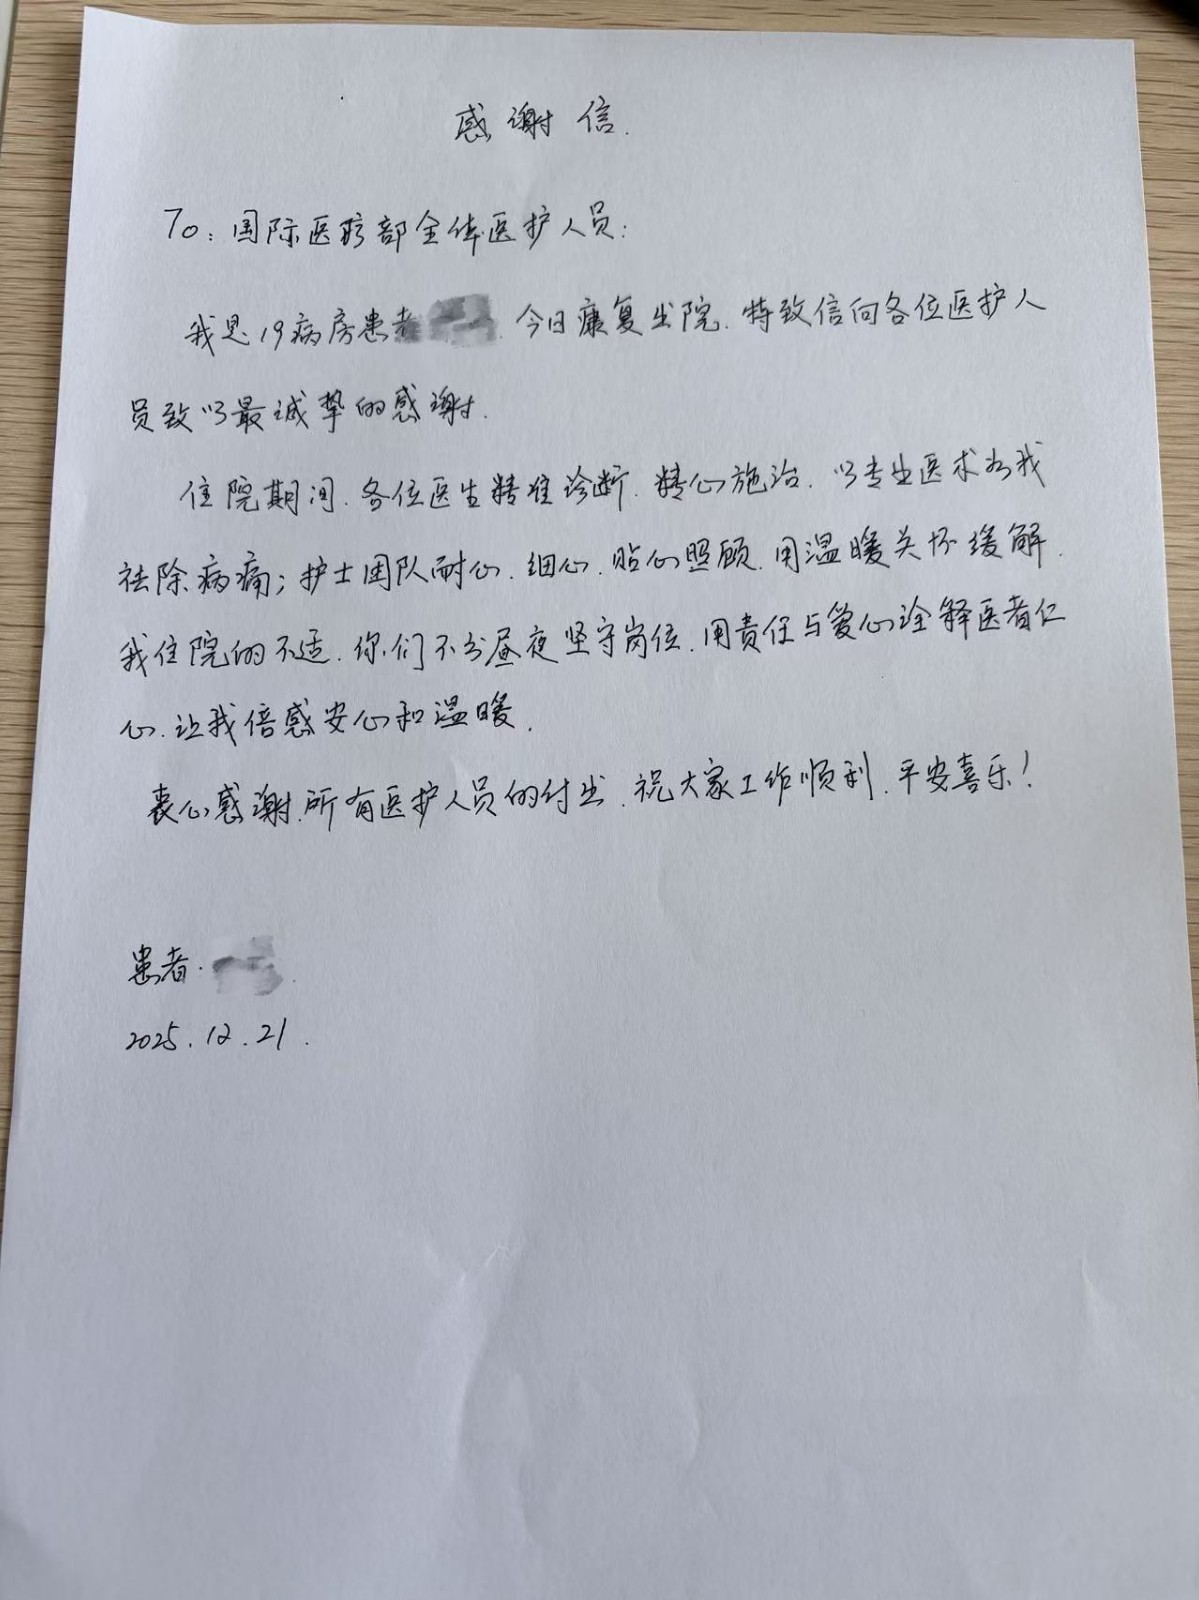 感谢信.
To: 国际医疗部全体医护人员:
我是19病房患者 今日康复出院.特致信向各位医护人
员致以最诚挚的感谢.
住院期间.各位医生精准诊断.精心施治.以专业医术为我
祛除病痛;护士团队耐心.细心.贴心照顾.用温暖关怀缓解.
我住院的不适.你们不分昼夜坚守岗位.用责任与爱心诠释医者仁
心.让我倍感安心和温暖.
衷心感谢.所有医护人员的付出.祝大家工作顺利.平安喜乐!
患者.
2025.12.21.